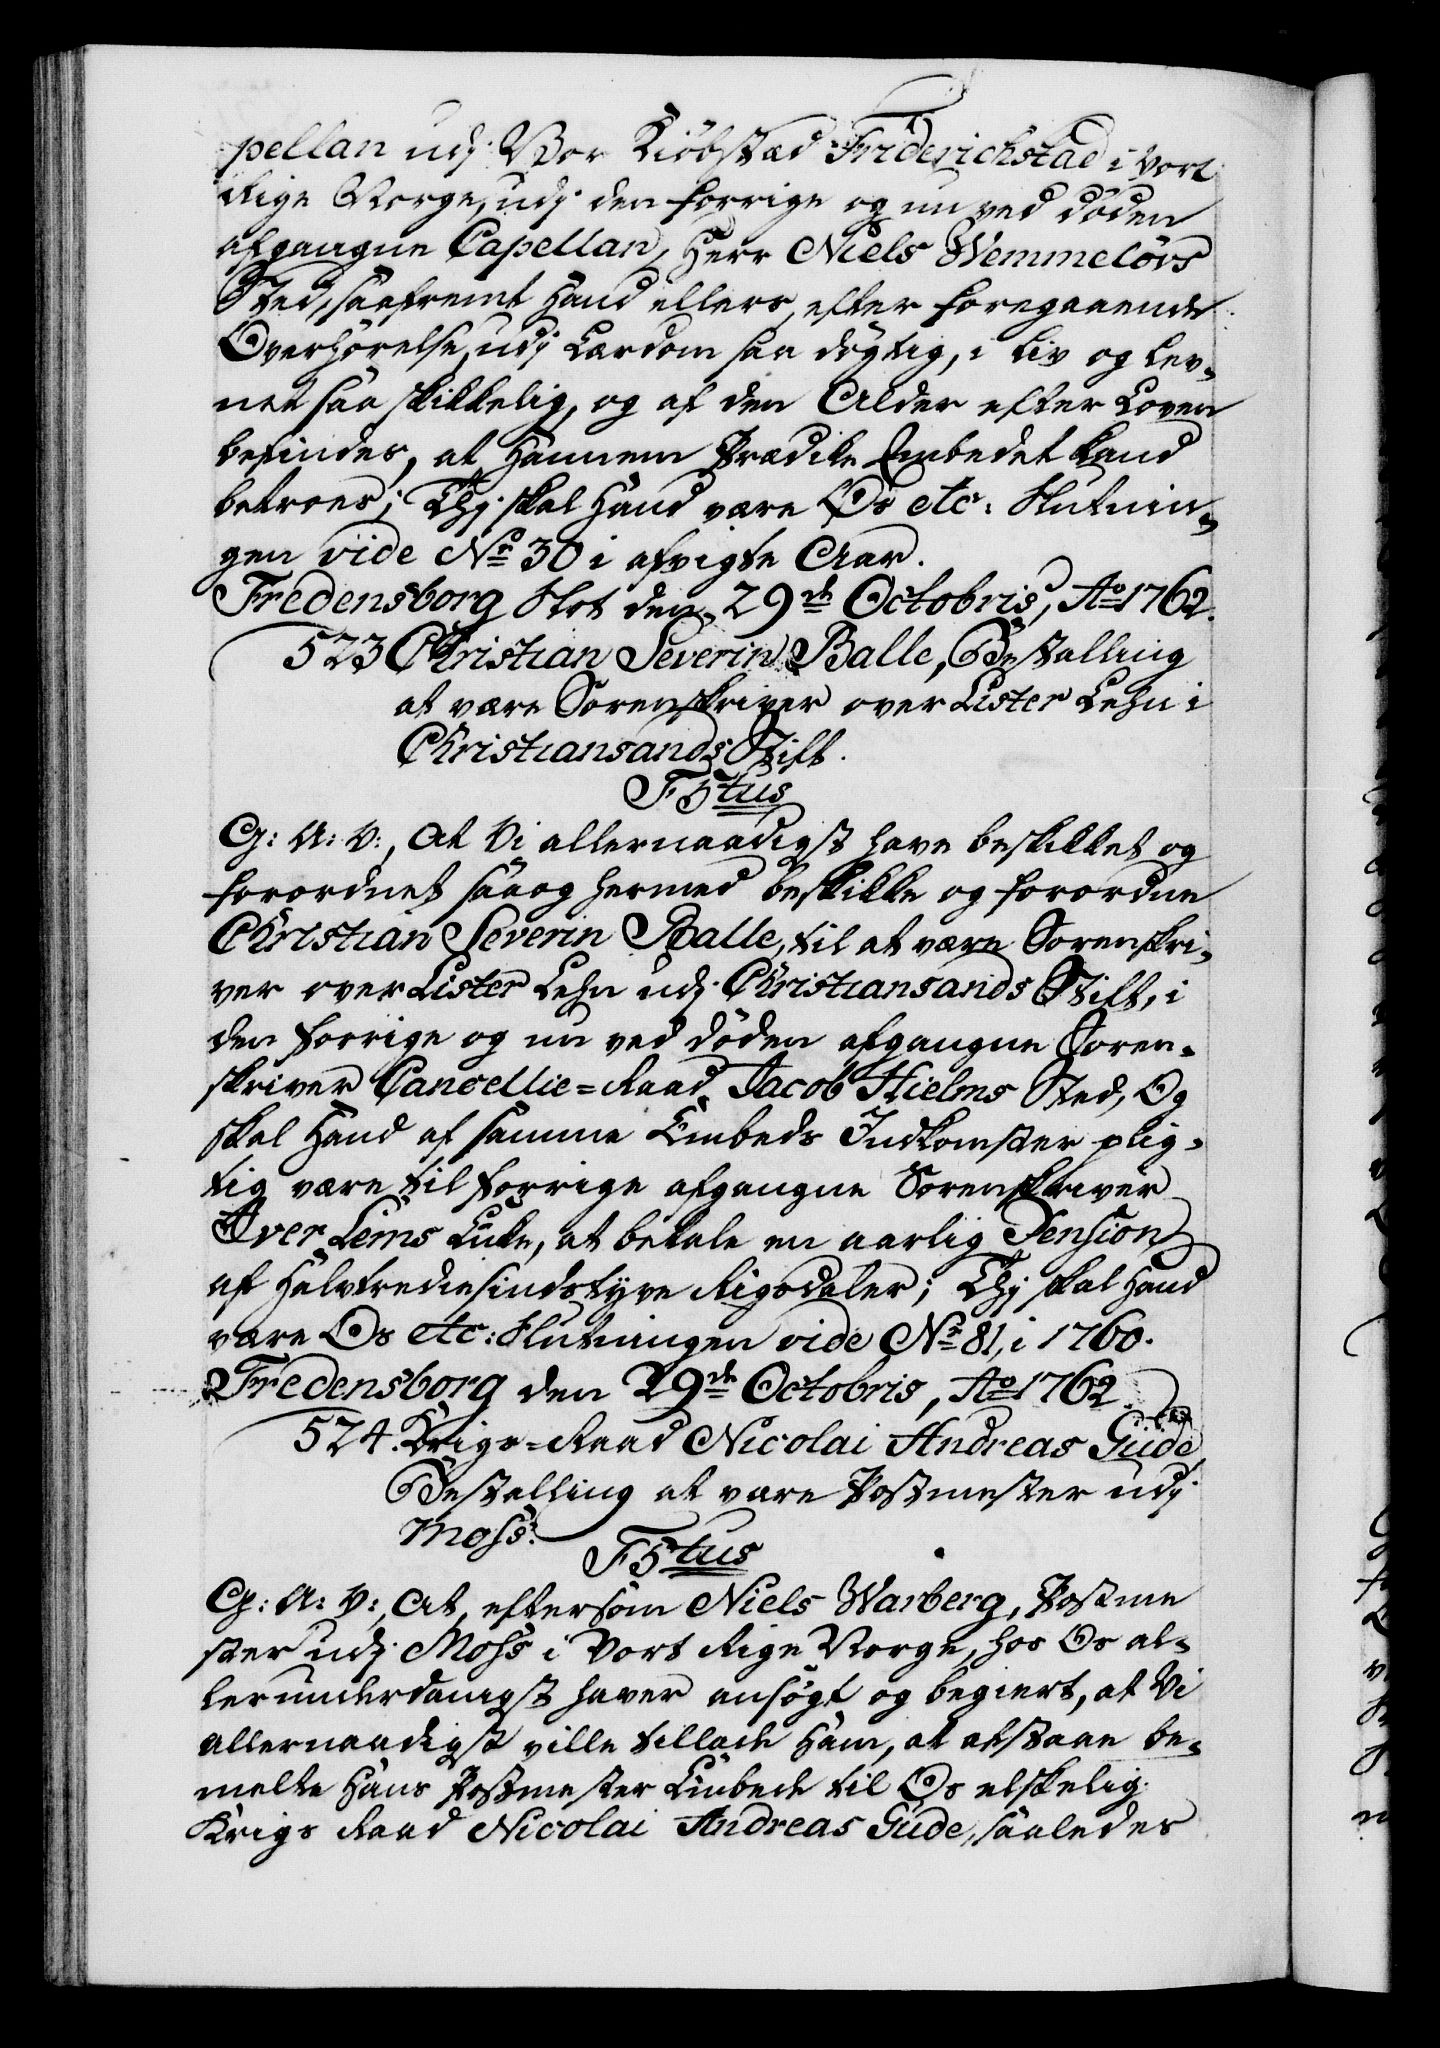 pellan udj Vor Kiöbstæd Friderichstad i Vort
Rige Norge, udj den forrige og nu ved döden
afgangne Capellan, Herr Niels Wemmelövs
Sted, saafremt Hand ellers, efter foregaaende
Overhörelse, udj Lærdom saa dögtig, i Liv og Lev¬
net saa skikkelig, og af den Alder efter Loven
befindes, at Hannem Prædike Embedet kand
betroes; Thj skal Hand være Os etc: Slutnin¬
gen vide No. 30 i afvigte Aar.
Fredensborg Slot den 29de Octobris, Ao 1762.
523 Christian Severin Balle, Bestalling
at være Sorenskriver over Lister Lehn i
Christiansands Stift.
F5tus
G: A: V:, At Vi allernaadigst have beskikket og
forordnet saaog hermed beskikke og forordne
Christian Severin Balle, til at være Sorenskri¬
ver over Lister Lehn udj Christiansands Stift, i
den forrige og nu ved döden afgangne Soren¬
skriver Cancellie-Raad Jacob Hielms Sted, Og
skal Hand af samme Embeds Indkomster plig¬
tig være til forrige afgangne Sorenskriver
Iver Lems Enke, at betale en aarlig Pension
af Halvtrediesindstyve Rigsdaler; Thj skal Hand
være Os etc: Slutningen vide No. 81, i 1760.
Fredensborg den 29de Octobris, Ao 1762.
524. Krigs-Raad Nicolai Andreas Gude
Bestalling at være Postmester udj
Moss.
F5tus
G: A: V:, At, eftersom Niels Warberg, Postme
ster udj Moss i Vort Rige Norge, hos Os al¬
lerunderdanigst haver ansögt og begiert, at Vi
allernaadigst ville tillade Ham, at afstaae be¬
melte Hans Postmester Embede til Os elskelig
Krigs Raad Nicolai Andreas Gude, saaledes